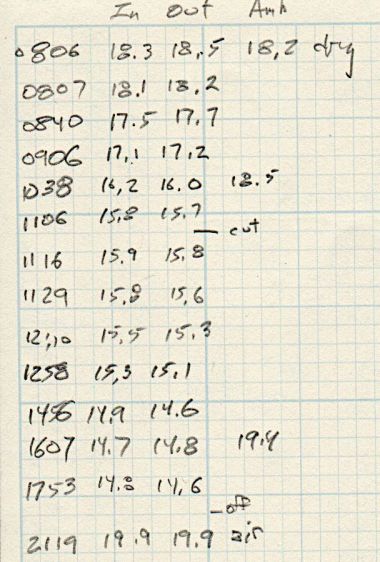 In Out Amb
0806 18.3 18.5 18.2 dry
0807 18.1 18.2
0840 17.5 17.7
0906 17.1 17.2
1038 16.2 16.0 18.5
1106 15.8 15.7
— cut
1116 15.9 15.8
1129 15.8 15.6
12:10 15.5 15.3
1258 15.3 15.1
1456 14.9 14.6
1607 14.7 14.8 19.4
1753 14.8 14.6
— off
2119 19.9 19.9 air